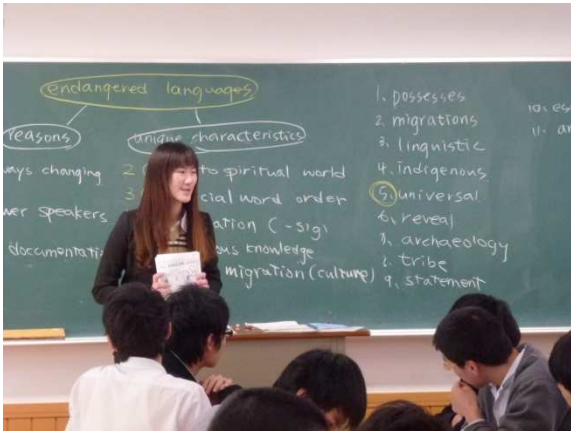 endangered languages
reasons
unique characteristics
changing
2 to spiritual world
3 word order
speakers
knowledge
migration (culture)
1. possesses
2. migrations
3. linguistic
4. indigenous
5. universal
6. reveal
7. archaeology
8. tribe
9. statement
10.
11.